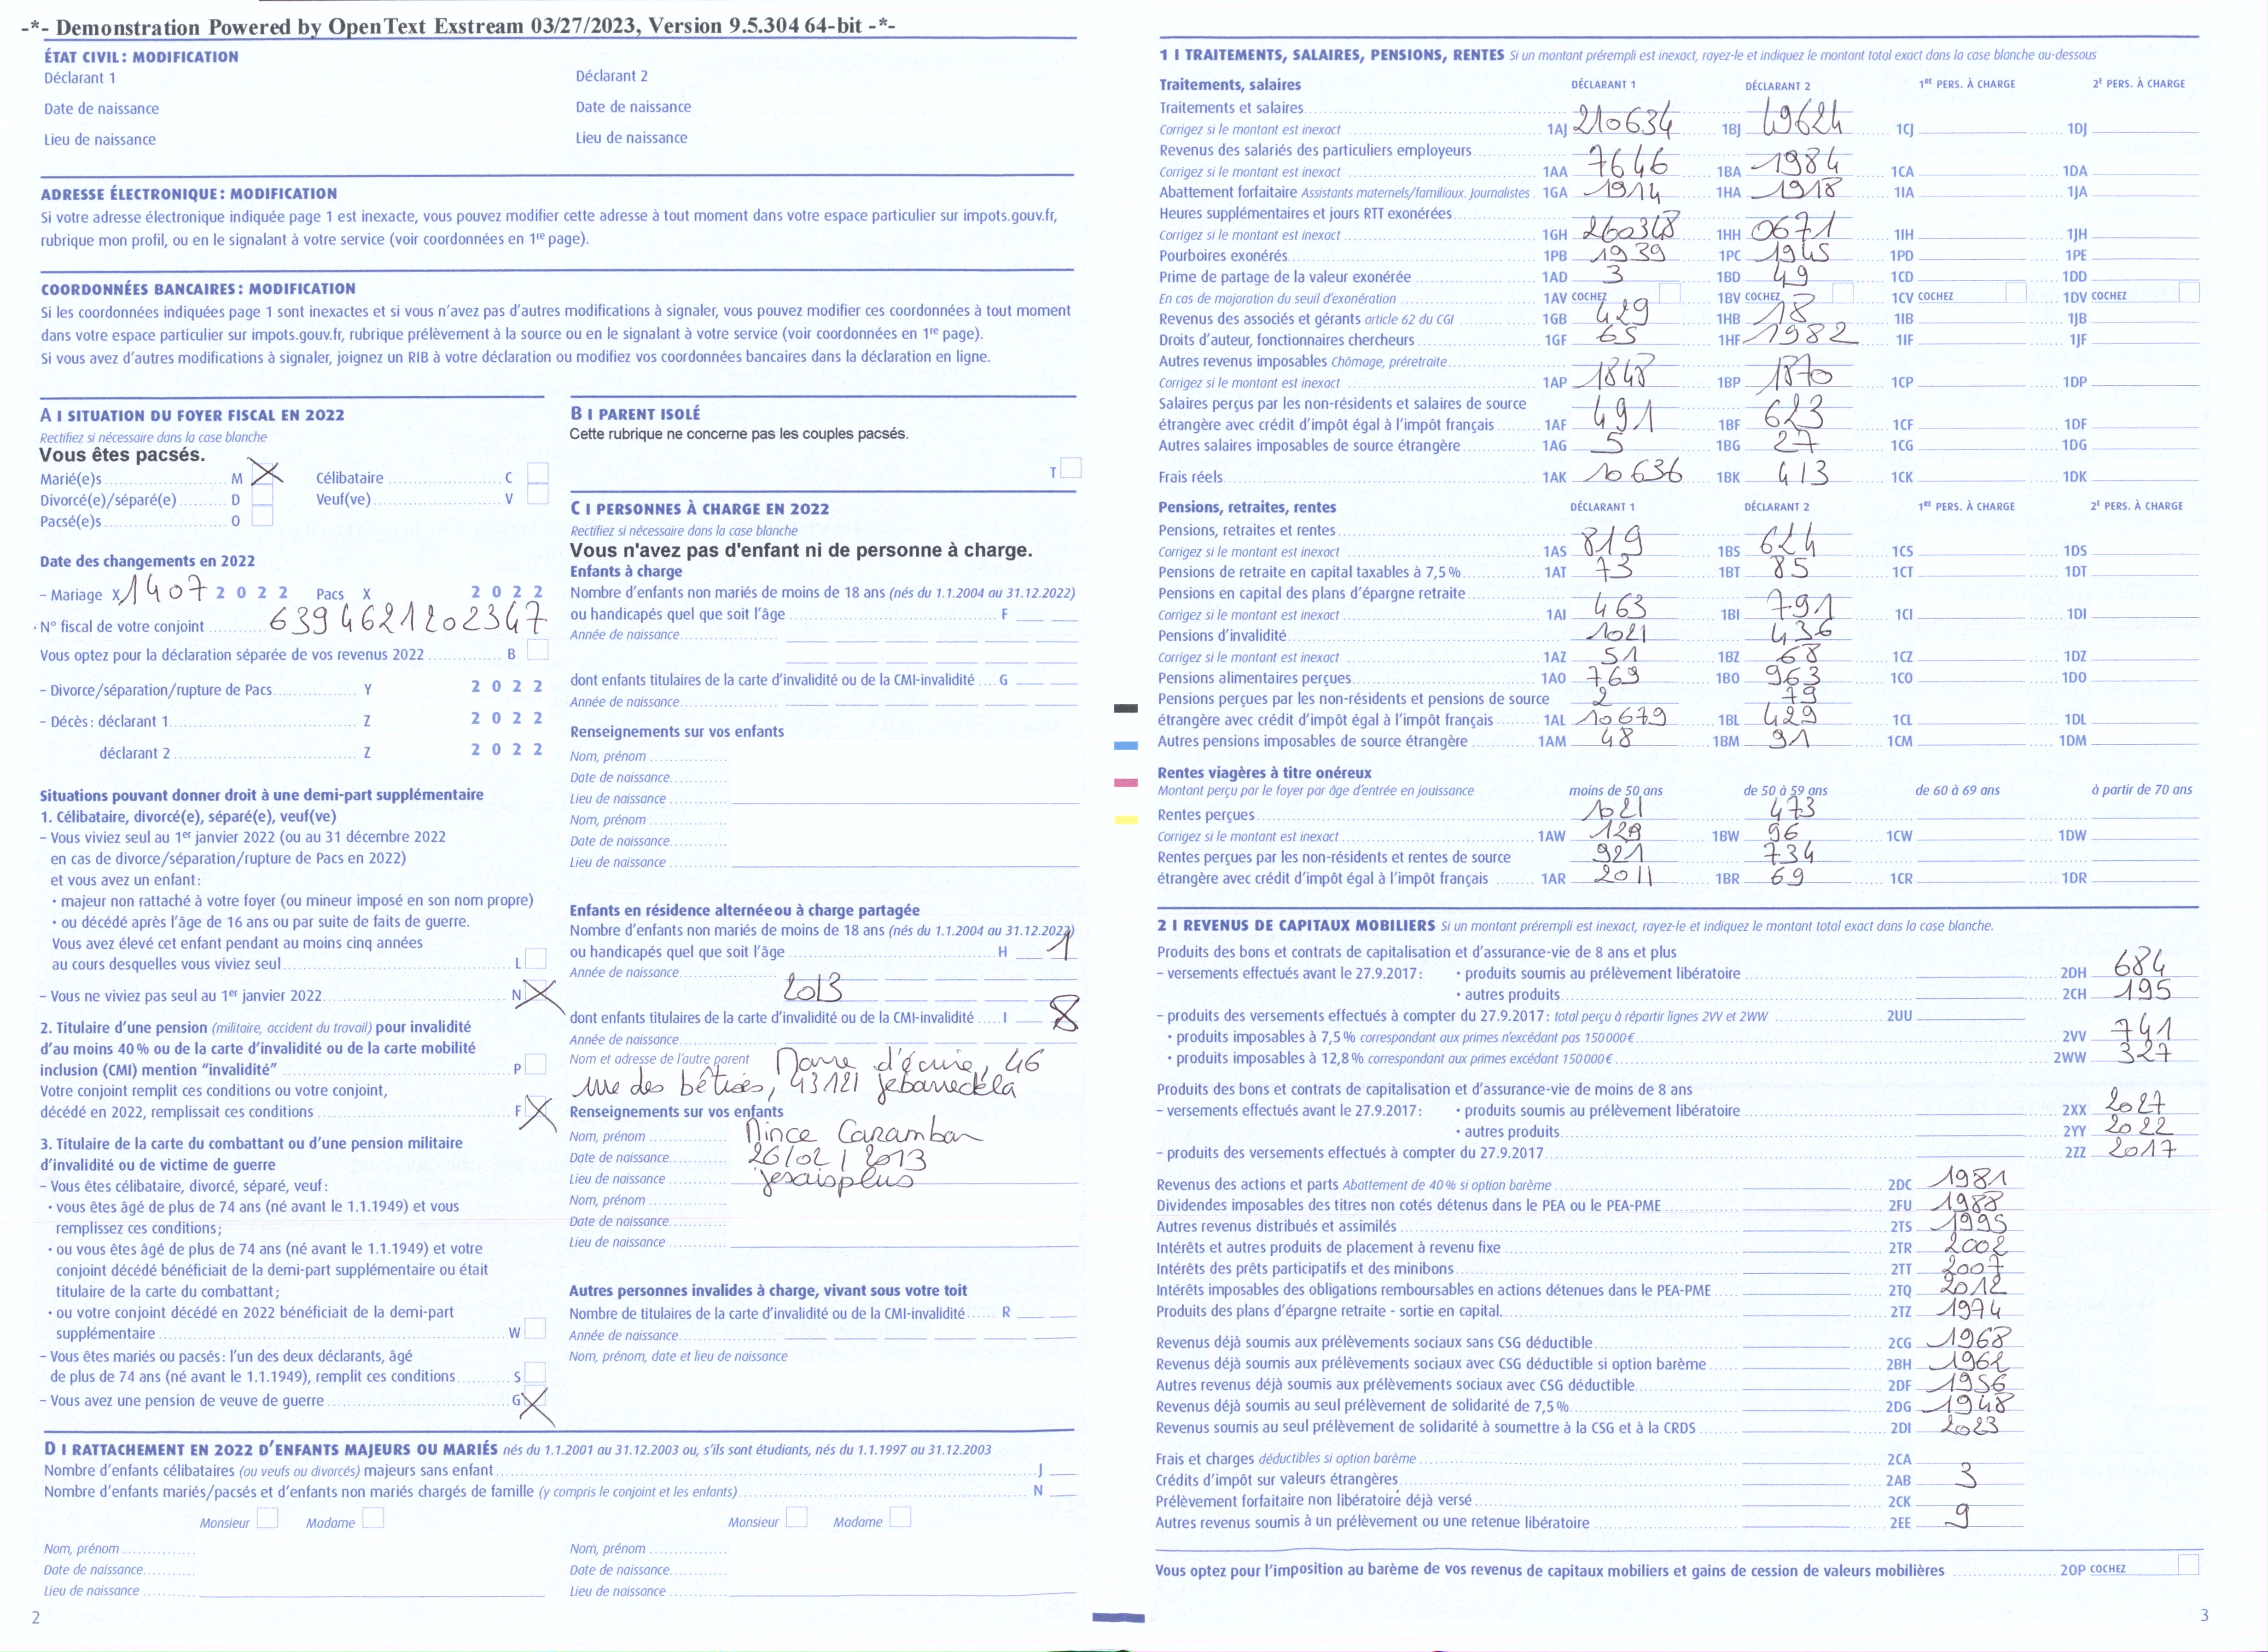 -*- Demonstration Powered by OpenText Exstream 03/27/2023, Version 9.5.304 64-bit -*-
ÉTAT CIVIL : MODIFICATION
Déclarant 1 Déclarant 2
Date de naissance Date de naissance
Lieu de naissance Lieu de naissance
ADRESSE ÉLECTRONIQUE : MODIFICATION
Si votre adresse électronique indiquée page 1 est inexacte, vous pouvez modifier cette adresse à tout moment dans votre espace particulier sur impots.gouv.fr,
rubrique mon profil, ou en le signalant à votre service (voir coordonnées en 1re page).
COORDONNÉES BANCAIRES : MODIFICATION
Si les coordonnées indiquées page 1 sont inexactes et si vous n'avez pas d'autres modifications à signaler, vous pouvez modifier ces coordonnées à tout moment
dans votre espace particulier sur impots.gouv.fr, rubrique prélèvement à la source ou en le signalant à votre service (voir coordonnées en 1re page).
Si vous avez d'autres modifications à signaler, joignez un RIB à votre déclaration ou modifiez vos coordonnées bancaires dans la déclaration en ligne.
A I SITUATION DU FOYER FISCAL EN 2022
Rectifiez si nécessaire dans la case blanche
Vous êtes pacsés.
Marié(e)s M X Célibataire C
Divorcé(e)/séparé(e) D Veuf(ve) V
Pacsé(e)s O
Date des changements en 2022
- Mariage X 1407 2022 Pacs X 2022
· N° fiscal de votre conjoint 6394621202347
Vous optez pour la déclaration séparée de vos revenus 2022 B
- Divorce/séparation/rupture de Pacs Y 2022
- Décès : déclarant 1 Z 2022
déclarant 2 Z 2022
Situations pouvant donner droit à une demi-part supplémentaire
1. Célibataire, divorcé(e), séparé(e), veuf(ve)
– Vous viviez seul au 1er janvier 2022 (ou au 31 décembre 2022
en cas de divorce/séparation/rupture de Pacs en 2022)
et vous avez un enfant :
• majeur non rattaché à votre foyer (ou mineur imposé en son nom propre)
• ou décédé après l'âge de 16 ans ou par suite de faits de guerre.
Vous avez élevé cet enfant pendant au moins cinq années
au cours desquelles vous viviez seul L
– Vous ne viviez pas seul au 1er janvier 2022 N X
2. Titulaire d'une pension (militaire, accident du travail) pour invalidité
d'au moins 40 % ou de la carte d'invalidité ou de la carte mobilité
inclusion (CMI) mention "invalidité" P
Votre conjoint remplit ces conditions ou votre conjoint,
décédé en 2022, remplissait ces conditions F X
3. Titulaire de la carte du combattant ou d'une pension militaire
d'invalidité ou de victime de guerre
– Vous êtes célibataire, divorcé, séparé, veuf :
• vous êtes âgé de plus de 74 ans (né avant le 1.1.1949) et vous
remplissez ces conditions ;
• ou vous êtes âgé de plus de 74 ans (né avant le 1.1.1949) et votre
conjoint décédé bénéficiait de la demi-part supplémentaire ou était
titulaire de la carte du combattant ;
• ou votre conjoint décédé en 2022 bénéficiait de la demi-part
supplémentaire W
– Vous êtes mariés ou pacsés : l'un des deux déclarants, âgé
de plus de 74 ans (né avant le 1.1.1949), remplit ces conditions S
– Vous avez une pension de veuve de guerre G X
B I PARENT ISOLÉ
Cette rubrique ne concerne pas les couples pacsés.
T
C I PERSONNES À CHARGE EN 2022
Rectifiez si nécessaire dans la case blanche
Vous n'avez pas d'enfant ni de personne à charge.
Enfants à charge
Nombre d'enfants non mariés de moins de 18 ans (nés du 1.1.2004 au 31.12.2022)
ou handicapés quel que soit l'âge F
Année de naissance
dont enfants titulaires de la carte d'invalidité ou de la CMI-invalidité G
Année de naissance
Renseignements sur vos enfants
Nom, prénom
Date de naissance
Lieu de naissance
Nom, prénom
Date de naissance
Lieu de naissance
Enfants en résidence alternée ou à charge partagée
Nombre d'enfants non mariés de moins de 18 ans (nés du 1.1.2004 au 31.12.2022)
ou handicapés quel que soit l'âge H 1
Année de naissance 2013
dont enfants titulaires de la carte d'invalidité ou de la CMI-invalidité I 8
Année de naissance
Nom et adresse de l'autre parent 46
rue des bêtises, 43121
Renseignements sur vos enfants
Nom, prénom Mince Carambar
Date de naissance 26/02/2013
Lieu de naissance jesaisplus
Nom, prénom
Date de naissance
Lieu de naissance
Autres personnes invalides à charge, vivant sous votre toit
Nombre de titulaires de la carte d'invalidité ou de la CMI-invalidité R
Année de naissance
Nom, prénom, date et lieu de naissance
D I RATTACHEMENT EN 2022 D'ENFANTS MAJEURS OU MARIÉS nés du 1.1.2001 au 31.12.2003 ou, s'ils sont étudiants, nés du 1.1.1997 au 31.12.2003
Nombre d'enfants célibataires (ou veufs ou divorcés) majeurs sans enfant J
Nombre d'enfants mariés/pacsés et d'enfants non mariés chargés de famille (y compris le conjoint et les enfants) N
Monsieur Madame Monsieur Madame
Nom, prénom Nom, prénom
Date de naissance Date de naissance
Lieu de naissance Lieu de naissance
2
1 I TRAITEMENTS, SALAIRES, PENSIONS, RENTES Si un montant prérempli est inexact, rayez-le et indiquez le montant total exact dans la case blanche au-dessous
Traitements, salaires DÉCLARANT 1 DÉCLARANT 2 1RE PERS. À CHARGE 2E PERS. À CHARGE
Traitements et salaires
Corrigez si le montant est inexact 1AJ 210634 1BJ 49624 1CJ 1DJ
Revenus des salariés des particuliers employeurs
Corrigez si le montant est inexact 1AA 7646 1BA 1984 1CA 1DA
Abattement forfaitaire Assistants maternels/familiaux. Journalistes 1GA 1914 1HA 1918 1IA 1JA
Heures supplémentaires et jours RTT exonérées
Corrigez si le montant est inexact 1GH 260348 1HH 0671 1IH 1JH
Pourboires exonérés 1PB 1939 1PC 1945 1PD 1PE
Prime de partage de la valeur exonérée 1AD 3 1BD 49 1CD 1DD
En cas de majoration du seuil d'exonération 1AV COCHEZ 1BV COCHEZ 1CV COCHEZ 1DV COCHEZ
Revenus des associés et gérants article 62 du CGI 1GB 429 1HB 18 1IB 1JB
Droits d'auteur, fonctionnaires chercheurs 1GF 65 1HF 1982 1IF 1JF
Autres revenus imposables Chômage, préretraite
Corrigez si le montant est inexact 1AP 1848 1BP 1870 1CP 1DP
Salaires perçus par les non-résidents et salaires de source
étrangère avec crédit d'impôt égal à l'impôt français 1AF 491 1BF 623 1CF 1DF
Autres salaires imposables de source étrangère 1AG 5 1BG 27 1CG 1DG
Frais réels 1AK 10636 1BK 413 1CK 1DK
Pensions, retraites, rentes DÉCLARANT 1 DÉCLARANT 2 1RE PERS. À CHARGE 2E PERS. À CHARGE
Pensions, retraites et rentes
Corrigez si le montant est inexact 1AS 819 1BS 624 1CS 1DS
Pensions de retraite en capital taxables à 7,5 % 1AT 73 1BT 85 1CT 1DT
Pensions en capital des plans d'épargne retraite
Corrigez si le montant est inexact 1AI 463 1BI 791 1CI 1DI
Pensions d'invalidité 1021 436
Corrigez si le montant est inexact 1AZ 51 1BZ 68 1CZ 1DZ
Pensions alimentaires perçues 1AO 769 1BO 963 1CO 1DO
Pensions perçues par les non-résidents et pensions de source 2 79
étrangère avec crédit d'impôt égal à l'impôt français 1AL 10679 1BL 429 1CL 1DL
Autres pensions imposables de source étrangère 1AM 48 1BM 91 1CM 1DM
Rentes viagères à titre onéreux
Montant perçu par le foyer par âge d'entrée en jouissance moins de 50 ans de 50 à 59 ans de 60 à 69 ans à partir de 70 ans
Rentes perçues 1021 473
Corrigez si le montant est inexact 1AW 129 1BW 96 1CW 1DW
Rentes perçues par les non-résidents et rentes de source 921 734
étrangère avec crédit d'impôt égal à l'impôt français 1AR 2011 1BR 69 1CR 1DR
2 I REVENUS DE CAPITAUX MOBILIERS Si un montant prérempli est inexact, rayez-le et indiquez le montant total exact dans la case blanche.
Produits des bons et contrats de capitalisation et d'assurance-vie de 8 ans et plus
– versements effectués avant le 27.9.2017 : • produits soumis au prélèvement libératoire 2DH 684
• autres produits 2CH 195
– produits des versements effectués à compter du 27.9.2017 : total perçu à répartir lignes 2VV et 2WW 2UU
• produits imposables à 7,5 % correspondant aux primes n'excédant pas 150 000 € 2VV 741
• produits imposables à 12,8 % correspondant aux primes excédant 150 000 € 2WW 327
Produits des bons et contrats de capitalisation et d'assurance-vie de moins de 8 ans
– versements effectués avant le 27.9.2017 : • produits soumis au prélèvement libératoire 2XX 2027
• autres produits 2YY 2022
– produits des versements effectués à compter du 27.9.2017 2ZZ 2017
Revenus des actions et parts Abattement de 40 % si option barème 2DC 1981
Dividendes imposables des titres non cotés détenus dans le PEA ou le PEA-PME 2FU 1988
Autres revenus distribués et assimilés 2TS 1995
Intérêts et autres produits de placement à revenu fixe 2TR 2002
Intérêts des prêts participatifs et des minibons 2TT 2007
Intérêts imposables des obligations remboursables en actions détenues dans le PEA-PME 2TQ 2012
Produits des plans d'épargne retraite - sortie en capital. 2TZ 1974
Revenus déjà soumis aux prélèvements sociaux sans CSG déductible 2CG 1968
Revenus déjà soumis aux prélèvements sociaux avec CSG déductible si option barème 2BH 1962
Autres revenus déjà soumis aux prélèvements sociaux avec CSG déductible 2DF 1956
Revenus déjà soumis au seul prélèvement de solidarité de 7,5 % 2DG 1948
Revenus soumis au seul prélèvement de solidarité à soumettre à la CSG et à la CRDS 2DI 2023
Frais et charges déductibles si option barème 2CA
Crédits d'impôt sur valeurs étrangères 2AB 3
Prélèvement forfaitaire non libératoire déjà versé 2CK
Autres revenus soumis à un prélèvement ou une retenue libératoire 2EE 9
Vous optez pour l'imposition au barème de vos revenus de capitaux mobiliers et gains de cession de valeurs mobilières 2OP COCHEZ
3